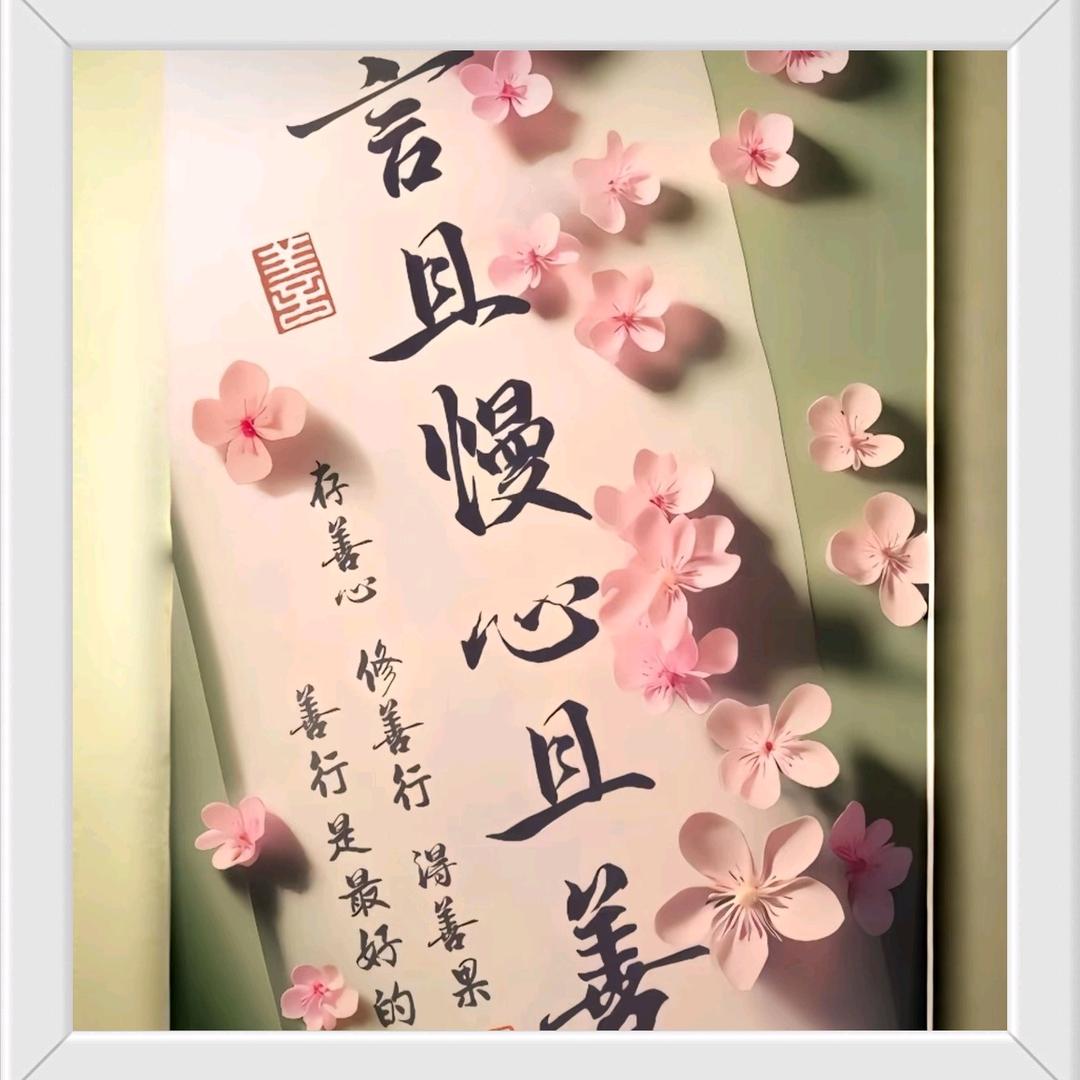 言且慢心且善
存善心 修善行 得善果
善行是最好的
善